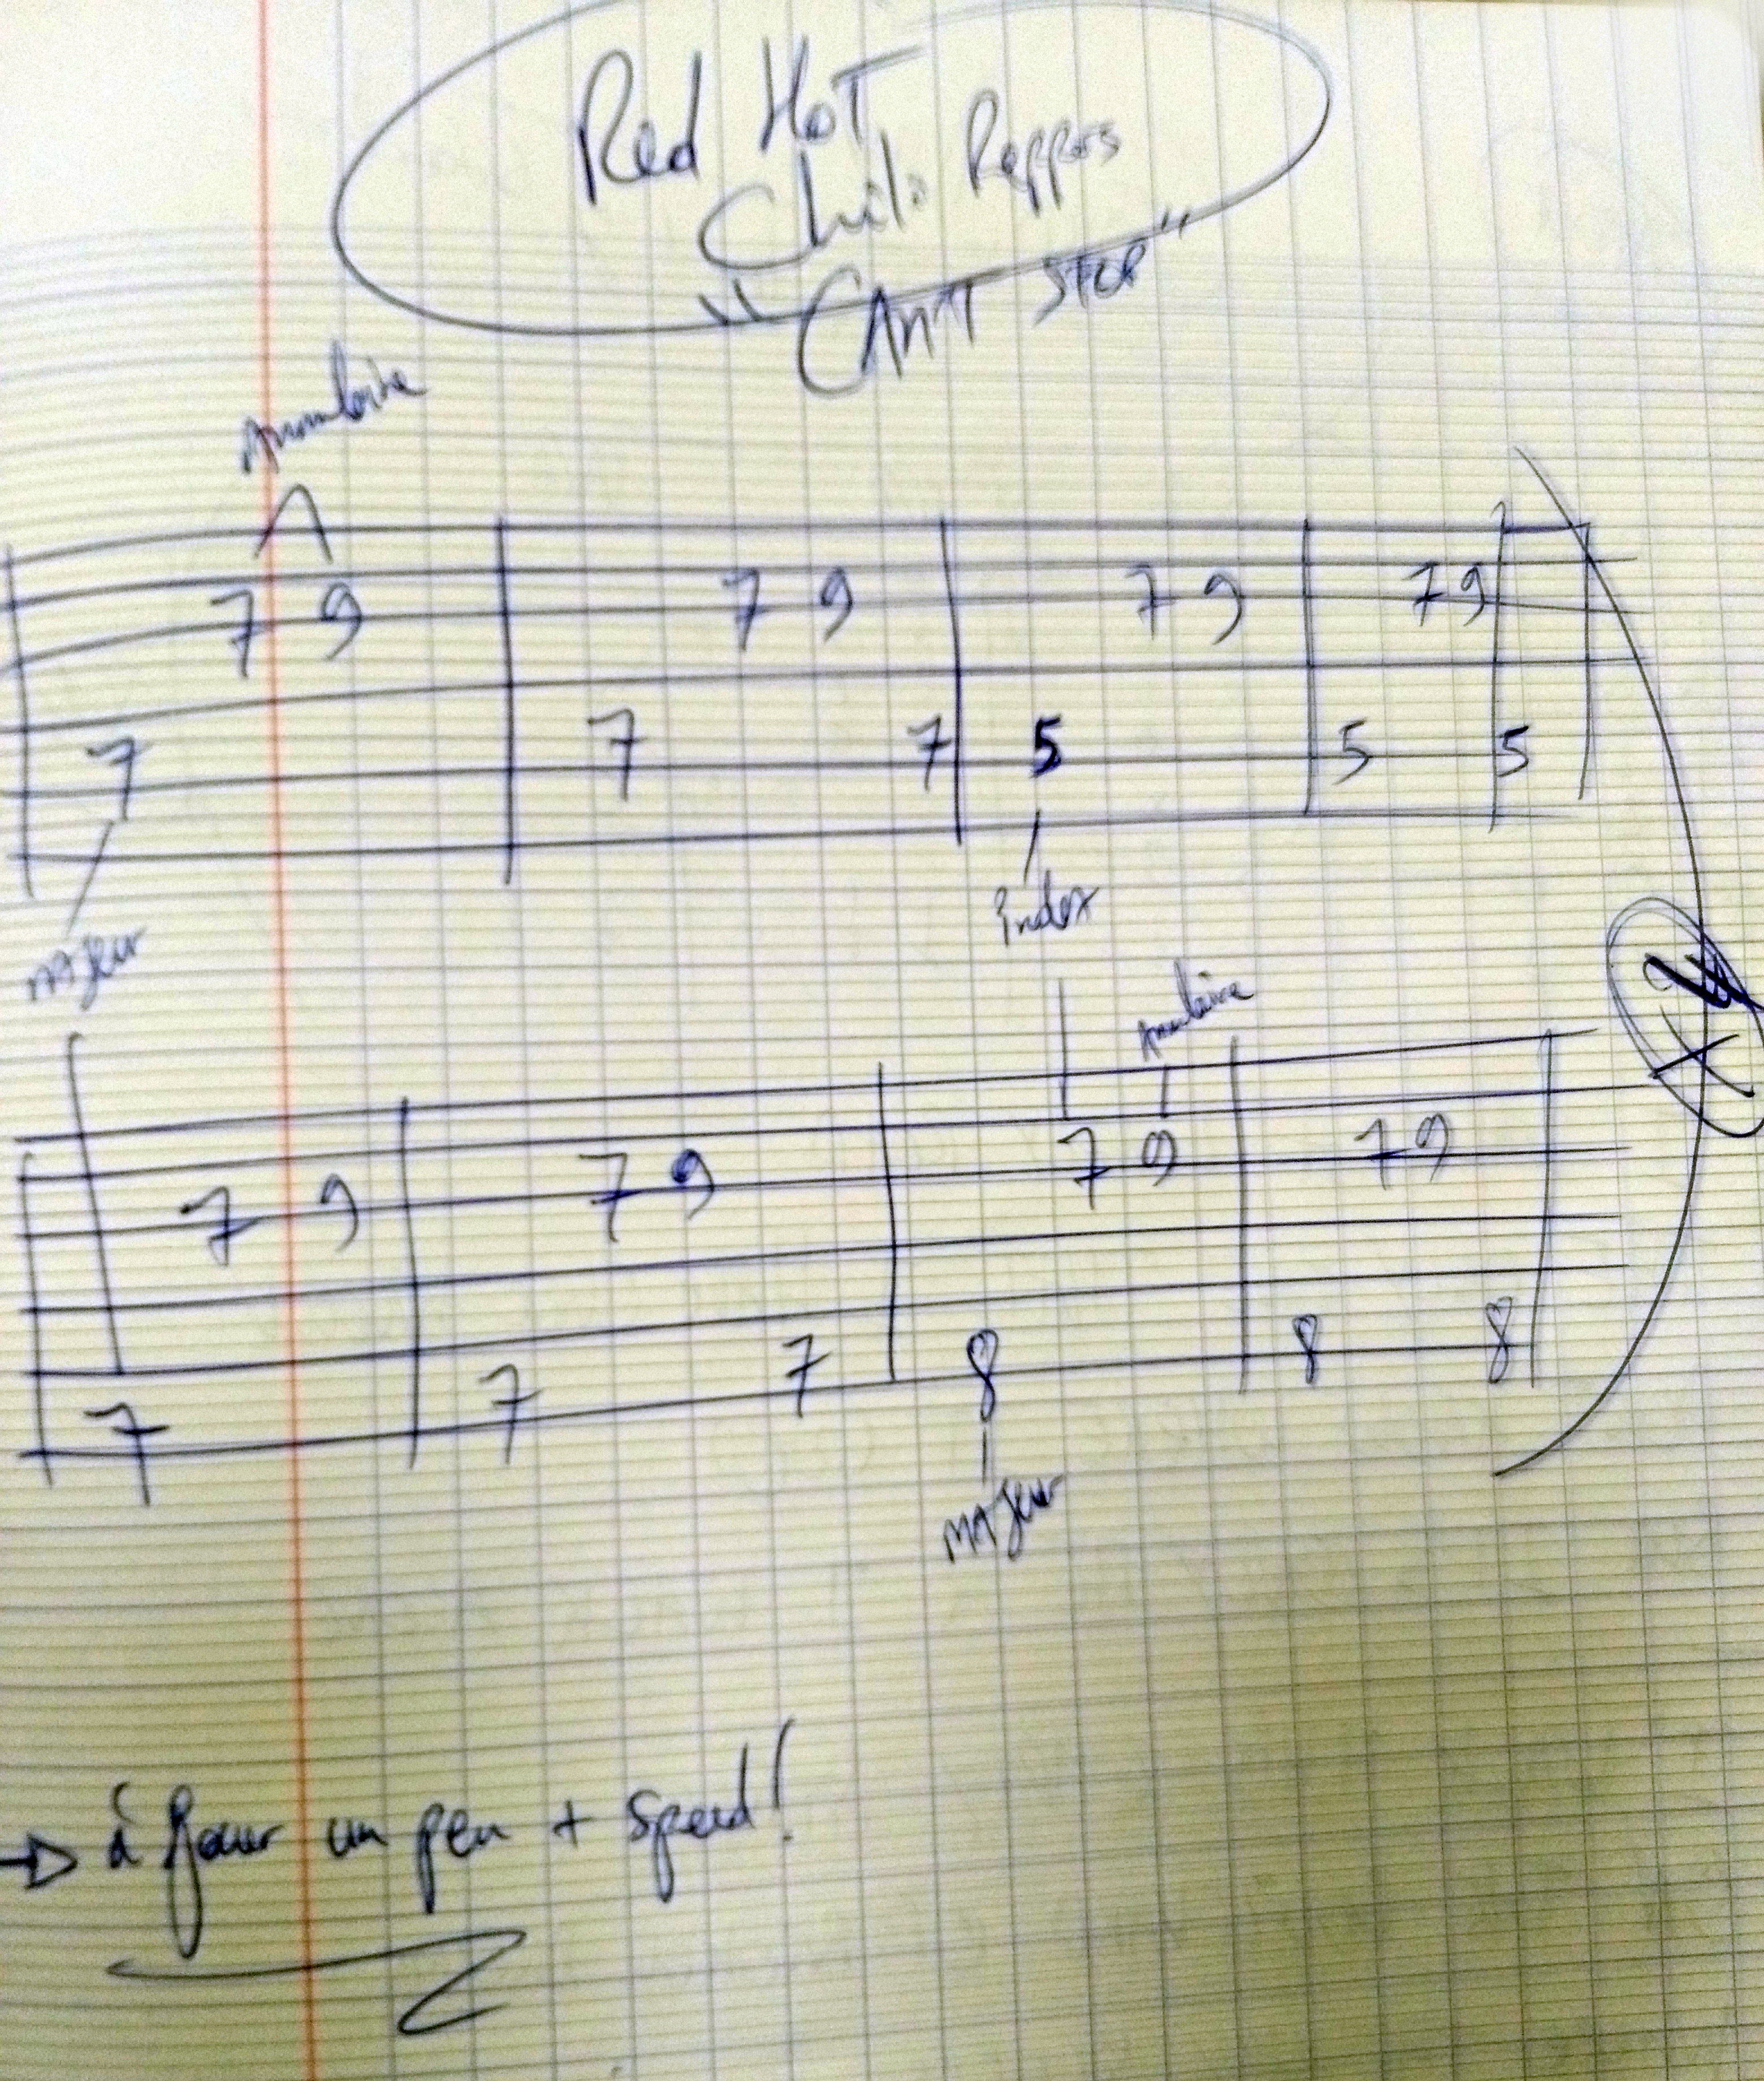 Red Hot
Chili Peppers
"CAN'T STOP"
Annulaire
7 9 7 9 7 9 7 9
7 7 7 5 5 5
majeur
index
Annulaire
7 9 7 9 7 9 7 9
7 7 7 8 8 8
majeur
à Jouer un peu + speed!